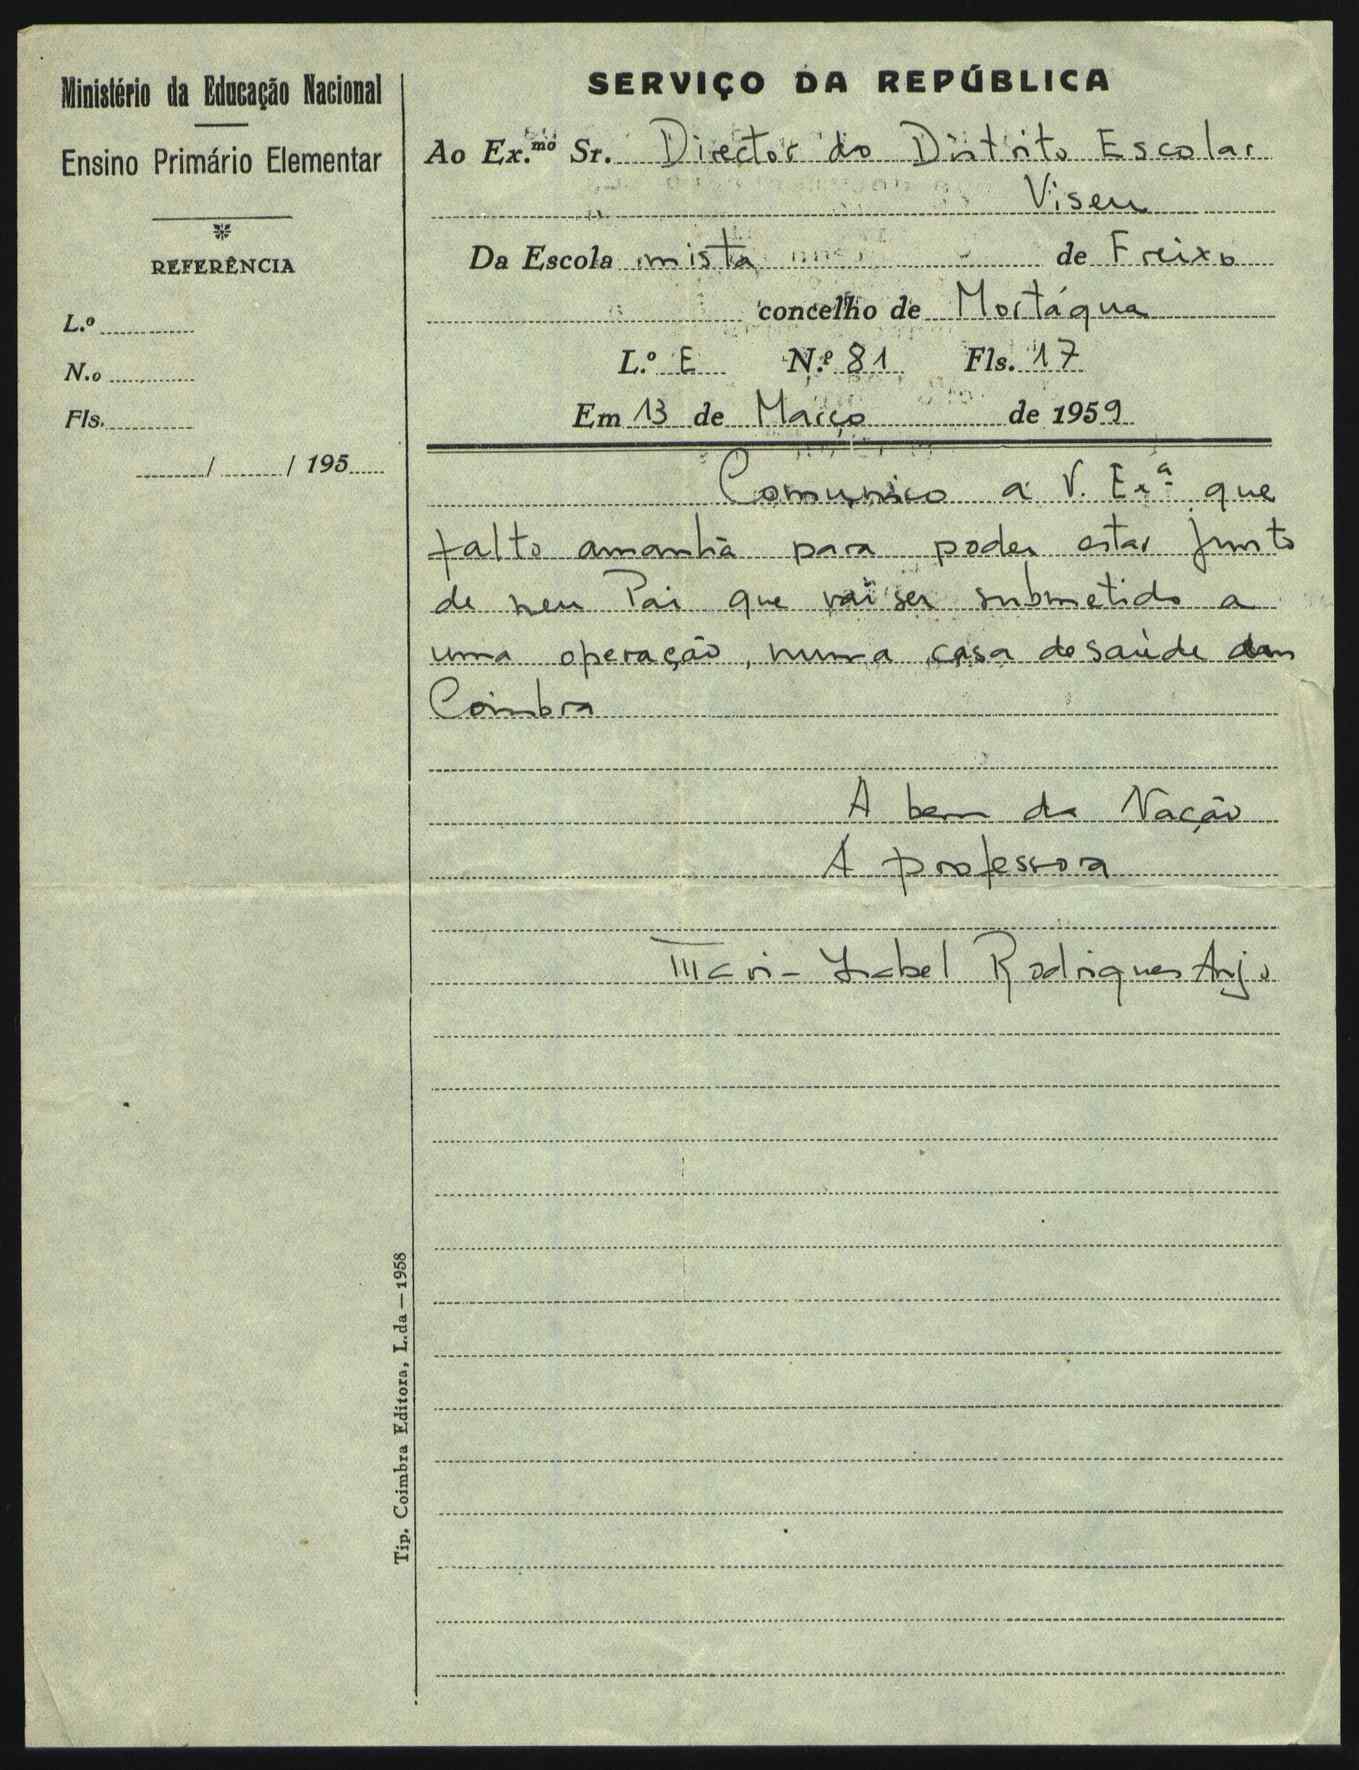 Ministério da Educação Nacional
Ensino Primário Elementar
REFERÊNCIA
L.º
N.o
Fls.
/ / 195
SERVIÇO DA REPÚBLICA
Ao Ex.mo Sr. Director do Distrito Escolar
Viseu
Da Escola mista de Freixo
concelho de Mortágua
L.º E N.º 81 Fls. 17
Em 13 de Março de 1959
Comunico a V. Exª que
falto amanhã para poder estar junto
de meu Pai que vai ser submetido a
uma operação, numa casa de saúde
Coimbra
A bem da Nação
A professora
Maria Isabel Rodrigues Anjo
Tip. Coimbra Editora, L.da — 1958